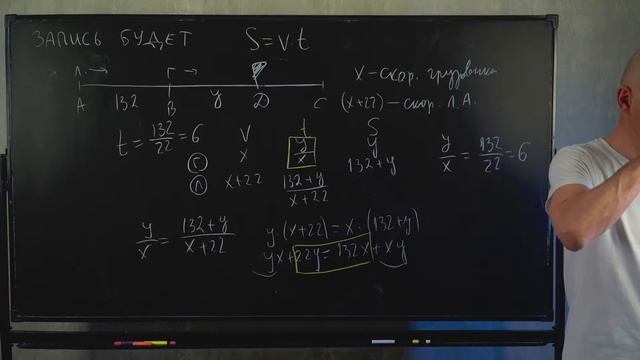 ЗАПИСЬ БУДЕТ S=v·t
Л.→ Г→
A 132 B y D C
x – скор. грузовика
(x+22) – скор. Л.А.
t = 132/22 = 6
V t S
Г x y/x y
Л x+22 (132+y)/(x+22) 132+y
y/x = 132/22 = 6
y/x = (132+y)/(x+22)
y·(x+22) = x·(132+y)
yx+22y=132x+xy